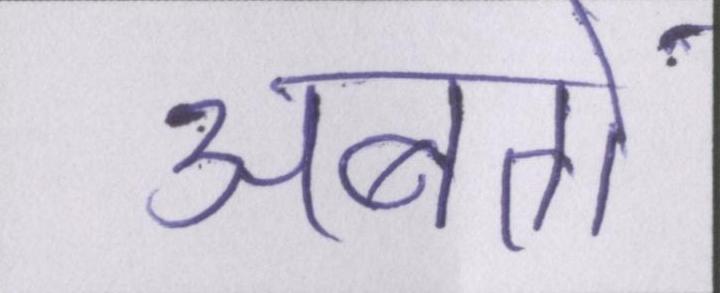 अबतों